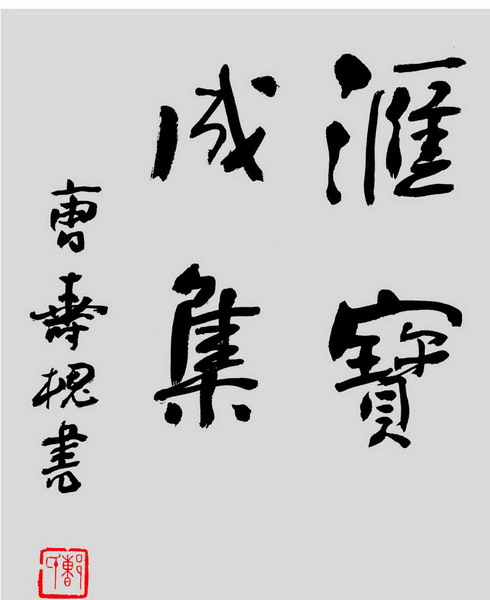 滙寶
成集
曹壽槐書